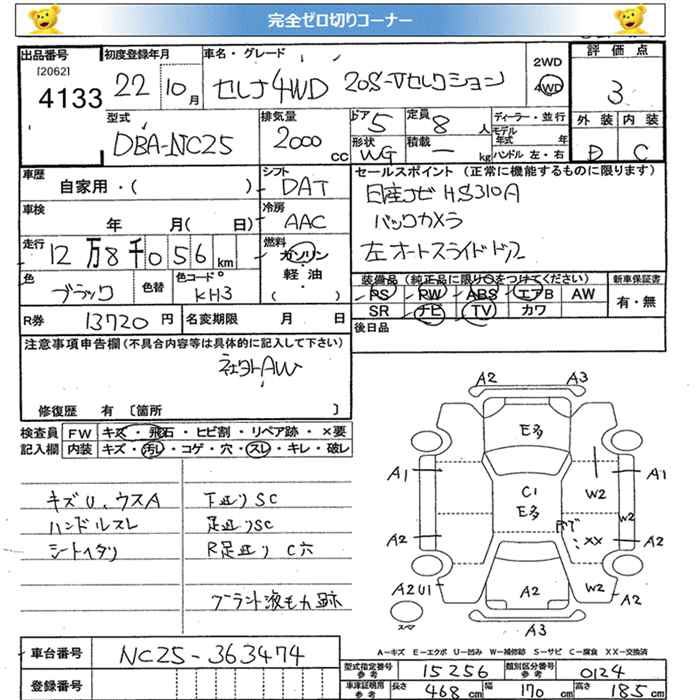 完全ゼロ切りコーナー
出品番号 初度登録年月 車名・グレード 2WD 評価点
[2062] 4133 22 10月 セレナ4WD 20S-Vセレクション 4WD 3
型式 排気量 ドア 5 定員 8人 ディーラー・並行 外装 内装
DBA-NC25 2000cc 形状 WG 積載 ー kg モデル年式 年 ハンドル 左・右 D C
車歴 自家用・( ) シフト DAT セールスポイント (正常に機能するものに限ります)
車検 年 月( 日) 冷房 AAC 日産ナビ HS310A
バックカメラ
走行 12万8千056km 燃料 ガソリン・軽油 ( ) 左オートスライドドア
色 ブラック 色替 色コード KH3 装備品 (純正品に限り○をつけてください) 新車保証書
PS PW ABS エアB AW 有・無
SR ナビ TV カワ
R券 13720円 名変期限 月 日 後日品
注意事項申告欄(不具合内容等は具体的に記入して下さい)
社外AW
修復歴 有 〔箇所 〕
検査員 FW キズ・飛石・ヒビ割・リペア跡・×要
記入欄 内装 キズ・汚レ・コゲ・穴・スレ・キレ・破レ
キズU、ウスA 下廻りSC
ハンドルスレ 足廻りSC
シートヘタリ R足廻り C穴
A2 A3
E多
A1 A1
C1 W2
E多 W2
A2 XX A2
A2U1 A2 W2 A2
A3
A-キズ E-エクボ U-凹み W-補修跡 S-サビ C-腐食 XX-交換済
車台番号 NC25-363474
登録番号
型式指定番号 参考 15256 類別区分番号 参考 0124
車庫証明用 参考 長さ 468cm 幅 170cm 高さ 185cm